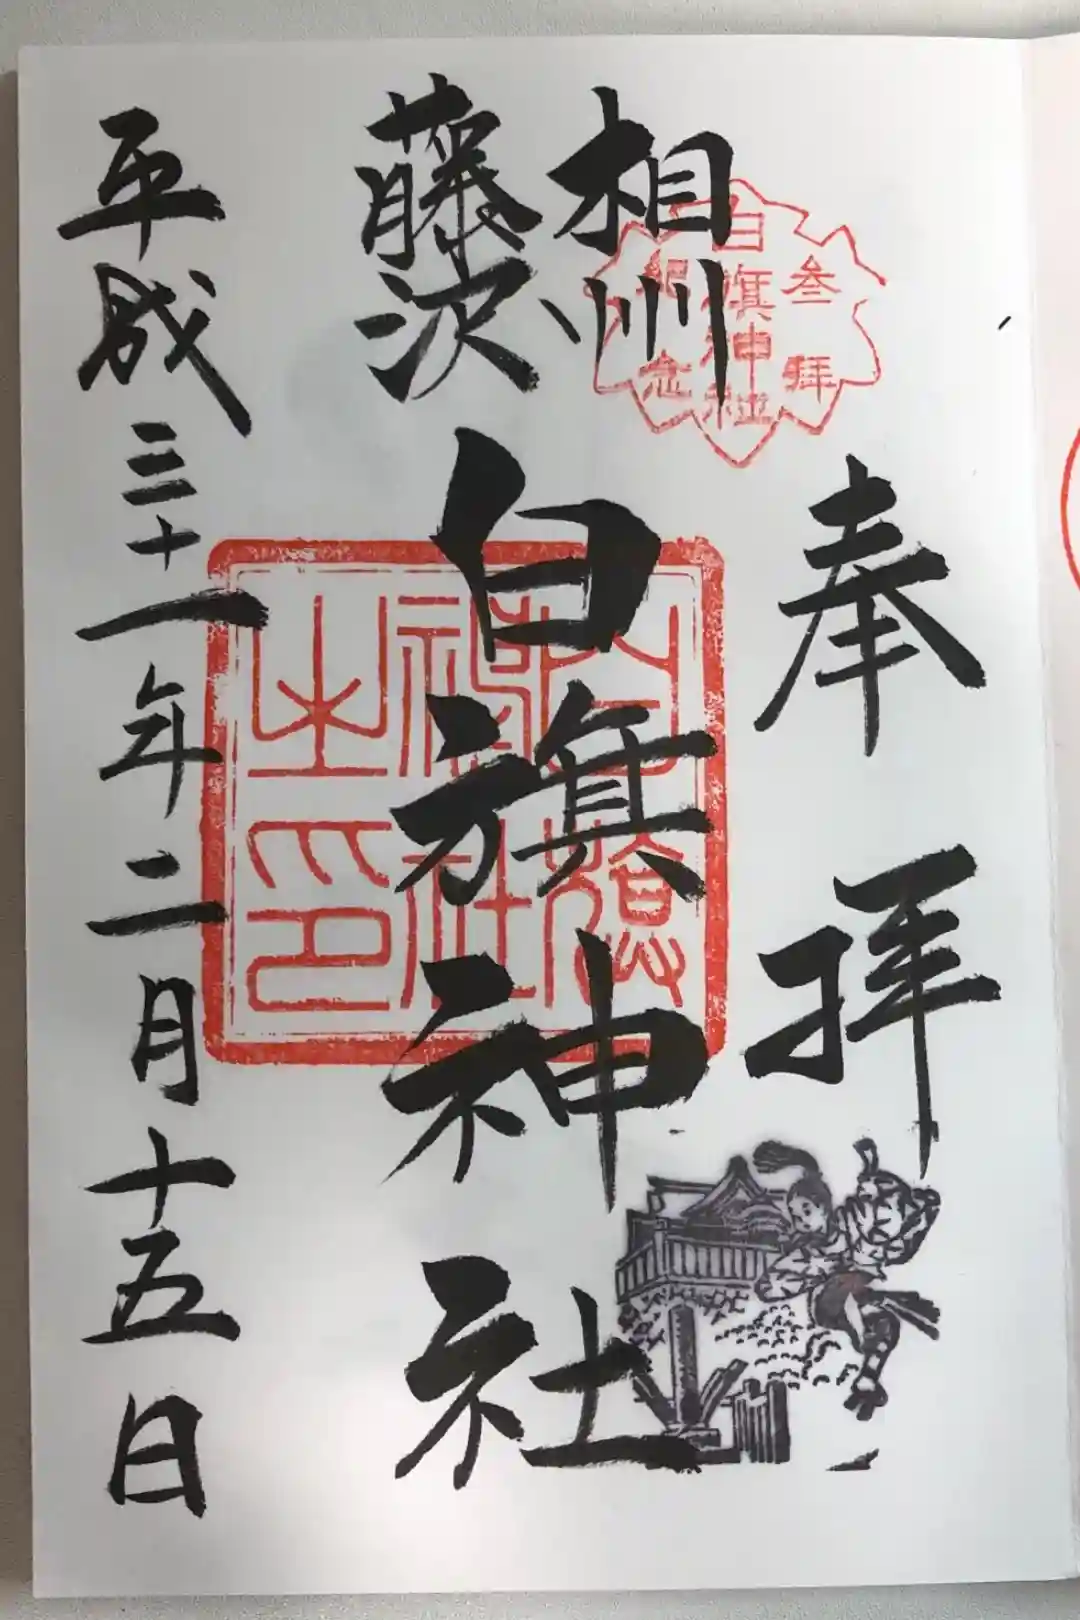 奉拝
参拝
白旗神社
紀念
相州
藤沢
白旗神社
白旗神社之印
平成三十一年二月十五日